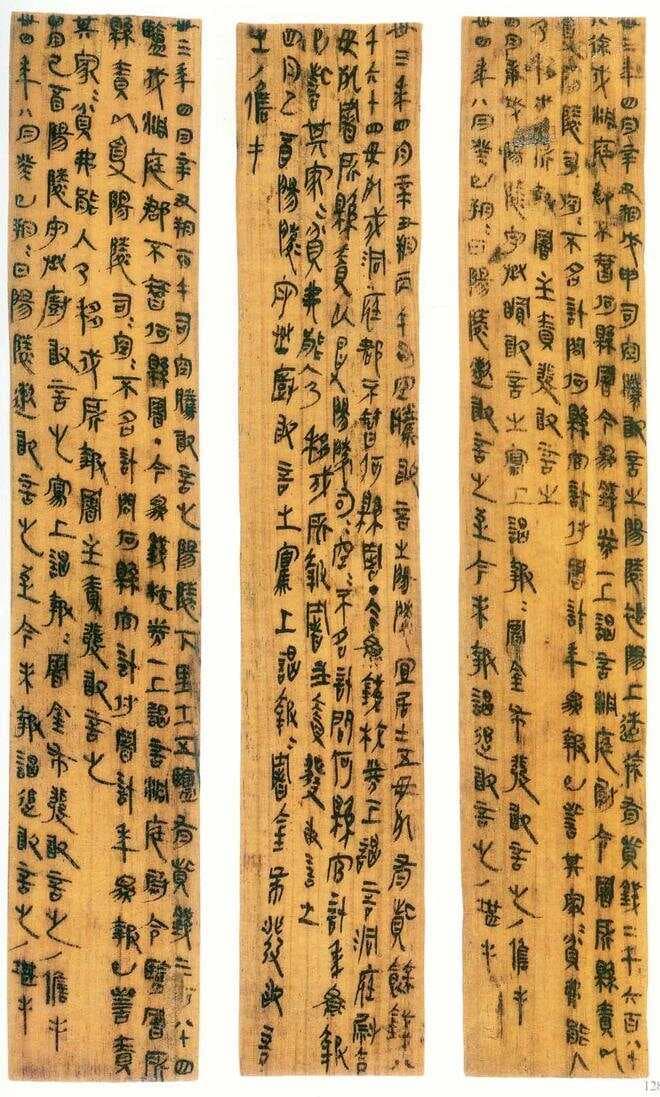 卅三年四月辛丑朔戊申司空騰敢言之陽陵褆陽上造徐有貲錢二千六百八十
八徐戍洞庭郡不智何縣署今為錢校券一上謁言洞庭尉令署所縣責以
受陽陵司〻空〻不名計問何縣官計付署計年為報已訾其家〻貧弗能入
乃移戍所報署主責發敢言之
四月庚戌陽陵守丞瞫敢言之寫上謁報〻署金布發敢言之/儋手
卅四年八月癸巳朔〻日陽陵遬敢言之至今未報謁追敢言之/堪手
卅三年四月辛丑朔丙午司空騰敢言之陽陵宜居士五毋死有貲餘錢八
千六十四毋死戍洞庭郡不智何縣署·今為錢校券一上謁言洞庭尉令
毋死署所縣責以受陽陵司〻空〻不名計問何縣官計年為報
已訾其家〻貧弗能入乃移戍所報署主責發敢言之
四月己酉陽陵守丞廚敢言之寫上謁報〻署金布發敢言
之/儋手
卅三年四月辛丑朔丙午司空騰敢言之陽陵下里士五鹽有貲錢三百八十四
鹽戍洞庭郡不智何縣署·今為錢校券一上謁言洞庭尉令鹽署所
縣責以受陽陵司〻空〻不名計問何縣官計付署計年為報已訾責
其家〻貧弗能入乃移戍所報署主責發敢言之
四月己酉陽陵守丞廚敢言之寫上謁報〻署金布發敢言之/儋手
卅四年八月癸巳朔〻日陽陵遬敢言之至今未報謁追敢言之/堪手